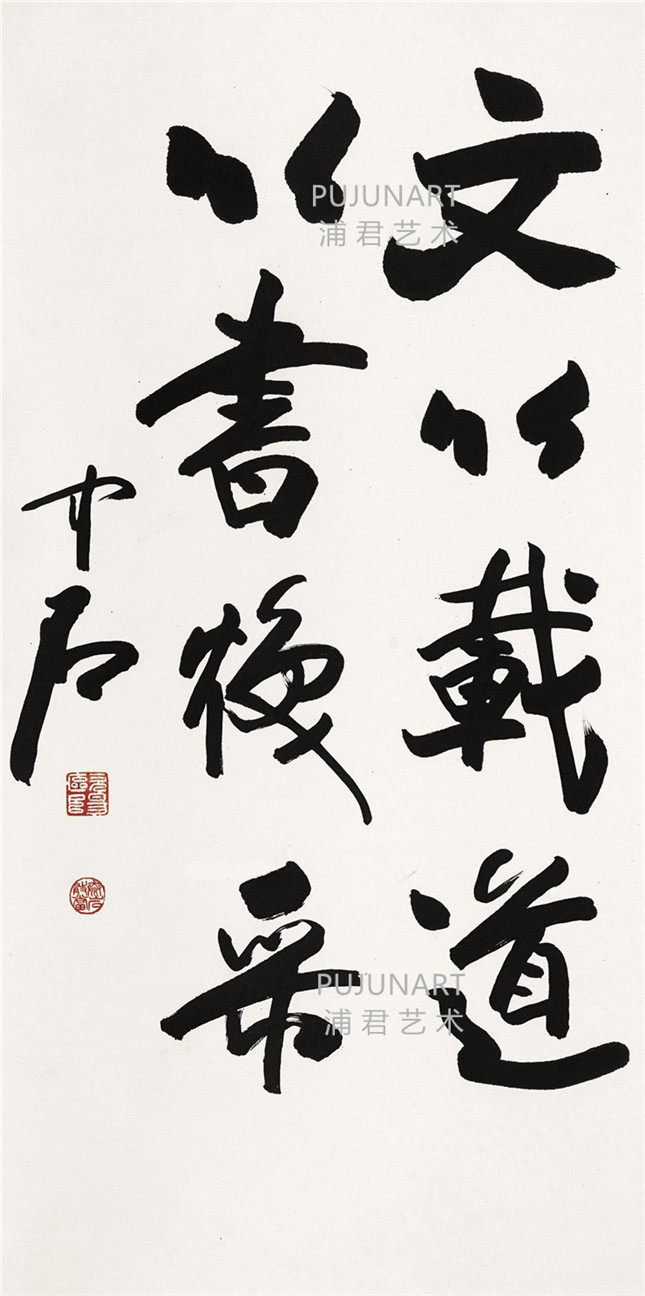 文以載道
以書煥采
中石
PUJUNART
浦君艺术
PUJUNART
浦君艺术